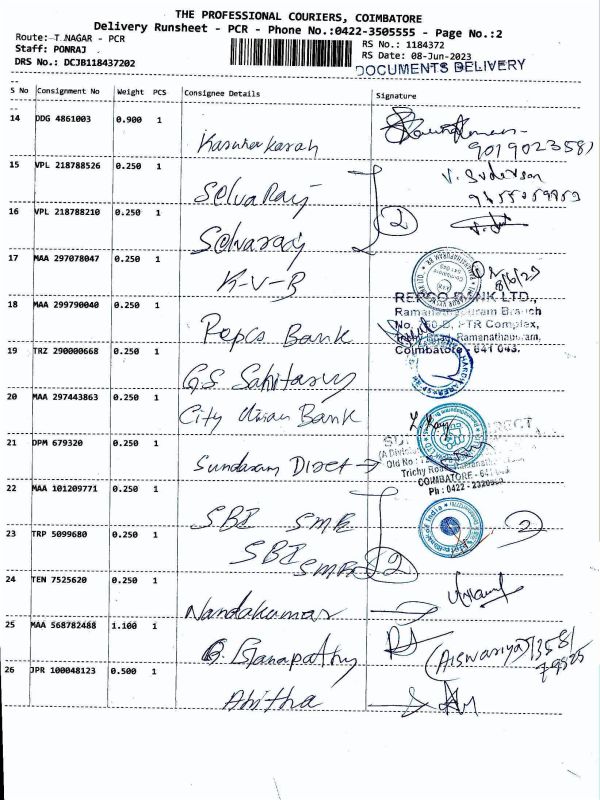 THE PROFESSIONAL COURIERS, COIMBATORE
Delivery Runsheet - PCR - Phone No.:0422-3505555 - Page No.:2
Route: T.NAGAR - PCR
RS No.: 1184372
Staff: PONRAJ
RS Date: 08-Jun-2023
DRS No.: DCJB118437202
DOCUMENTS DELIVERY
S No Consignment No Weight PCS Consignee Details Signature
14 DDG 4861003 0.900 1
9019023581
15 VPL 218788526 0.250 1 Selva Raj V. Sudevson
16 VPL 218788210 0.250 1 Selvaraj 2
17 MAA 297078047 0.250 1 K-V-B 8/6/23
18 MAA 299790040 0.250 1 Repco Bank
REPCO BANK LTD.,
Ramanathapuram Branch
PTR Complex,
Trichy Road, Ramanathapuram,
Coimbatore - 641 043.
19 TRZ 290000668 0.250 1 G.S
20 MAA 297443863 0.250 1 City Union Bank
21 DPM 679320 0.250 1 Sundaram Direct
DIRECT
(A Division
Old No :
Trichy Road, Ramanathapuram
COIMBATORE - 641
Ph : 0422 -
22 MAA 101209771 0.250 1 SBI SME
23 TRP 5099680 0.250 1 SBI SME 2 2
24 TEN 7525620 0.250 1 Nandakumar
25 MAA 568782488 1.100 1 G. Ganapathy (Aiswariya)
26 JPR 100048123 0.500 1 Anitha